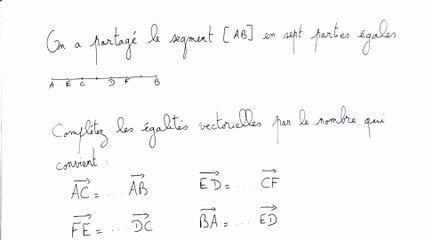 On a partagé le segment [AB] en sept parties égales
A E C D F B
Complétez les égalités vectorielles par le nombre qui
convient :
$\overrightarrow{AC}$ = ... $\overrightarrow{AB}$ $\overrightarrow{ED}$ = ... $\overrightarrow{CF}$
$\overrightarrow{FE}$ = ... $\overrightarrow{DC}$ $\overrightarrow{BA}$ = ... $\overrightarrow{ED}$